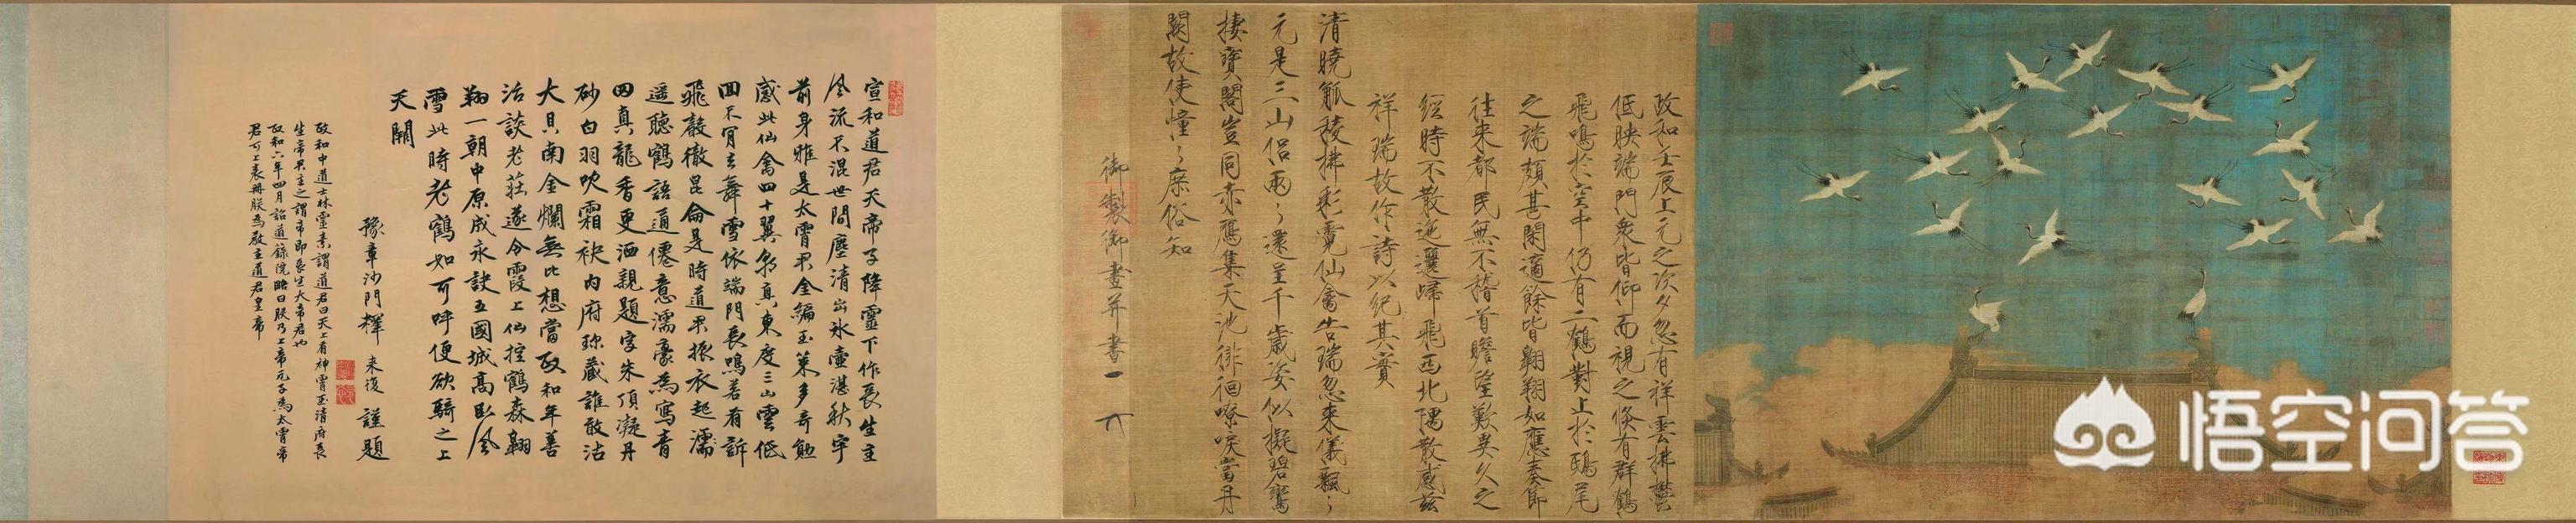 政和壬辰上元之次夕忽有祥雲拂鬱
低映端門衆皆仰而視之倏有群鶴
飛鳴於空中仍有二鶴對止於鴟尾
之端頗甚閑適餘皆翱翔如應奏節
往來都民無不稽首瞻望歎異久之
經時不散迤邐歸飛西北隅散感茲
祥瑞故作詩以紀其實
清曉觚稜拂彩霓仙禽告瑞忽來儀飄々
元是三山侶兩々還呈千歲姿似擬碧鸞
棲寶閣豈同赤鴈集天池徘徊嘹唳當丹
闕故使憧々庶俗知
御製御畫并書
宣和道君天帝子降靈下作長生主
風流不混世間塵清出冰壺湛秋宇
前身雅是太霄君金編玉策多奇勉
感此仙禽四十翼朝真東度三山雲低
回不肯去舞雪依端門長鳴若有訴
飛聲徹昆侖是時道君振衣起濡
遥聽鶴語通僊意濡豪為寫青
田真龍香更洒親題字朱頂凝丹
砂白羽吹霜袂内府珎藏誰敢沽
大貝南金爛無比想當政和年善
活談老莊遂令霞上仙控鶴森翱
翔一朝中原成永訣五國城高卧風
雪此時老鶴如可呼便欲騎之上
天關
豫章沙門釋 来復 謹題
政和中道士林靈素謂道君曰天上有神霄玉清府長
生帝君主之謂帝即長生大帝君也
政和六年四月詔道籙院略曰朕乃上帝元子為太霄帝
君可上表册朕為教主道君皇帝
悟空问答